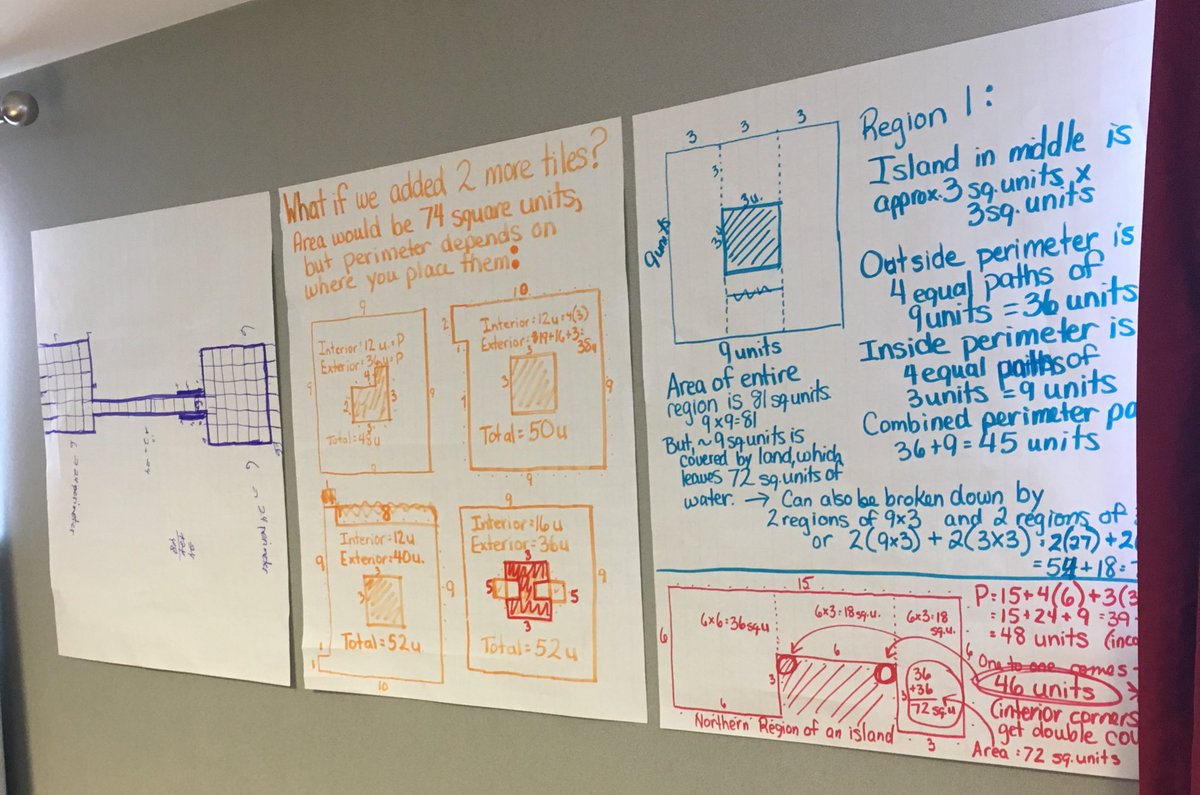 What if we added 2 more tiles?
Area would be 74 square units,
but perimeter depends on
where you place them:
9
Interior: 12 u. = P
Exterior: 36 u = P
4
2
3
3
9
9
Total = 48 u
9
10
2
1
Interior: 12u = 4(3)
3
3
7
9
Total = 50u
9
8
Interior: 12u
Exterior: 40u.
3
3
9
9
Total = 52u
1
10
9
Interior = 16u
Exterior = 36u
3
5
5
3
9
Total = 52u
3
3
3
3
3u.
3u
9 units
Area of entire
region is 81 sq units.
9 x 9 = 81
But, ~ 9 sq units is
covered by land, which
leaves 72 sq. units of
water. → Can also be broken down by
2 regions of 9x3 and 2 regions of
or 2(9x3) + 2(3x3) = 2(27) + 2(
= 54 + 18 =
Region 1:
Island in middle is
approx. 3 sq. units x
3 sq. units
Outside perimeter is
4 equal paths of
9 units = 36 units
Inside perimeter is
4 equal paths of
3 units = 9 units
Combined perimeter pa
36 + 9 = 45 units
15
6
6x6 = 36 sq u
6x3 = 18 sq. u.
6x3 = 18
sq. u.
6
3
3
6
6
36
+36
72 sq u
3
Northern Region of an island
P = 15 + 4(6) + 3(3
= 15 + 24 + 9 = 39
= 48 units (inco
46 units
(interior corners
get double cou
Area = 72 sq. units